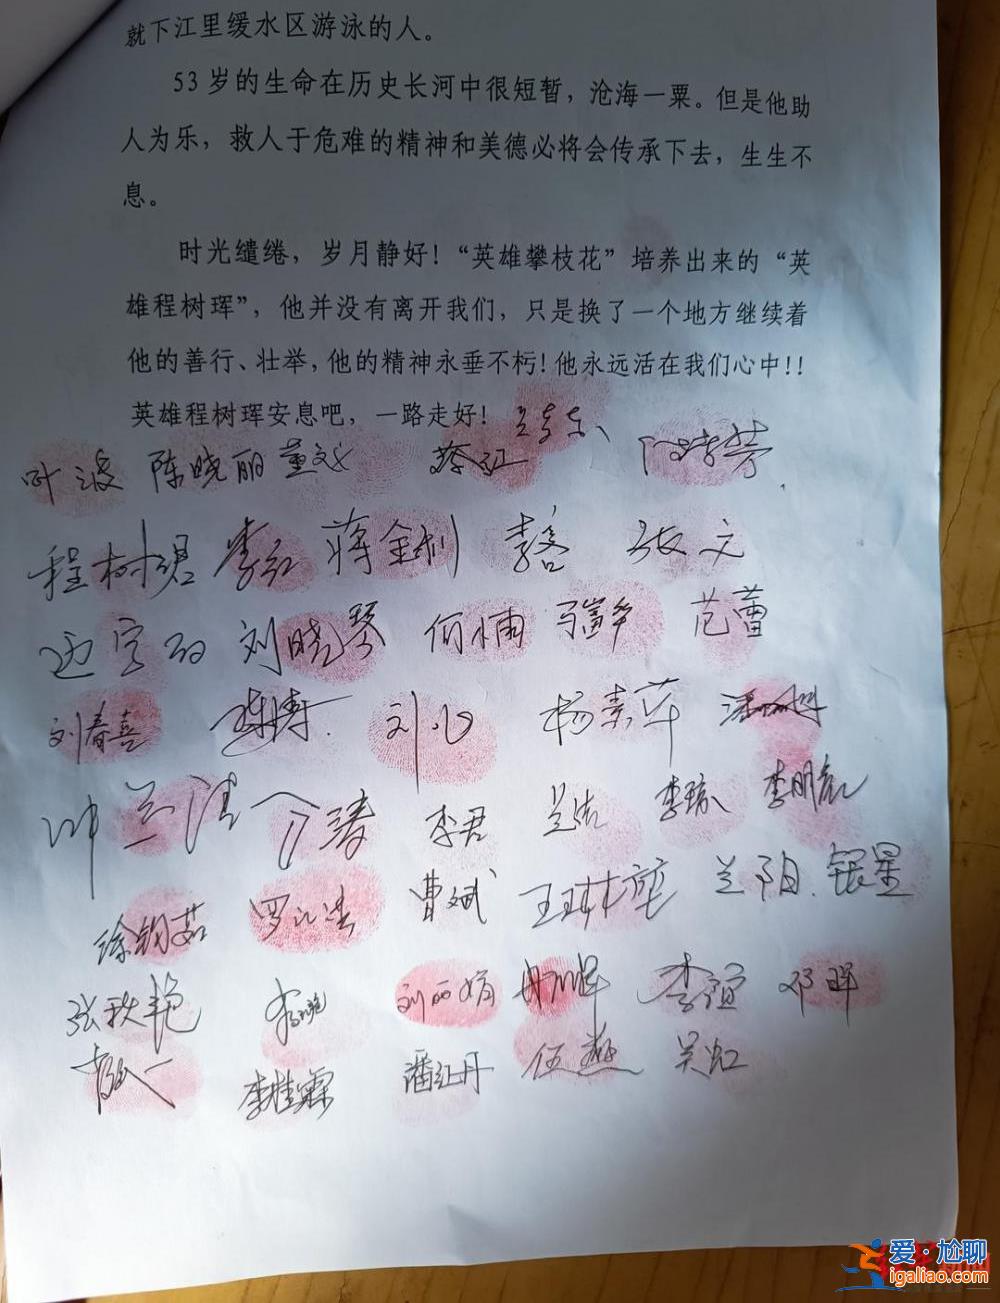 就下江里缓水区游泳的人。
53岁的生命在历史长河中很短暂，沧海一粟。但是他助
人为乐，救人于危难的精神和美德必将会传承下去，生生不
息。
时光缱绻，岁月静好！“英雄攀枝花”培养出来的“英
雄程树珲”，他并没有离开我们，只是换了一个地方继续着
他的善行、壮举，他的精神永垂不朽！他永远活在我们心中！！
英雄程树珲安息吧，一路走好！
叶波 陈晓丽 董文
程树琨 李红 蒋金钊 张文
刘晓琴 何小雨 马富华 范蕾
刘春喜 陈涛 刘心 杨素萍
李君 兰洁 李瑜
罗江洪 曹斌 王琳 兰阳 银星
张秋艳 李艳 刘丽娟 李谊 邓晖
李桂霖 潘江丹 伍燕 吴虹
爱·尬聊
igaliao.com